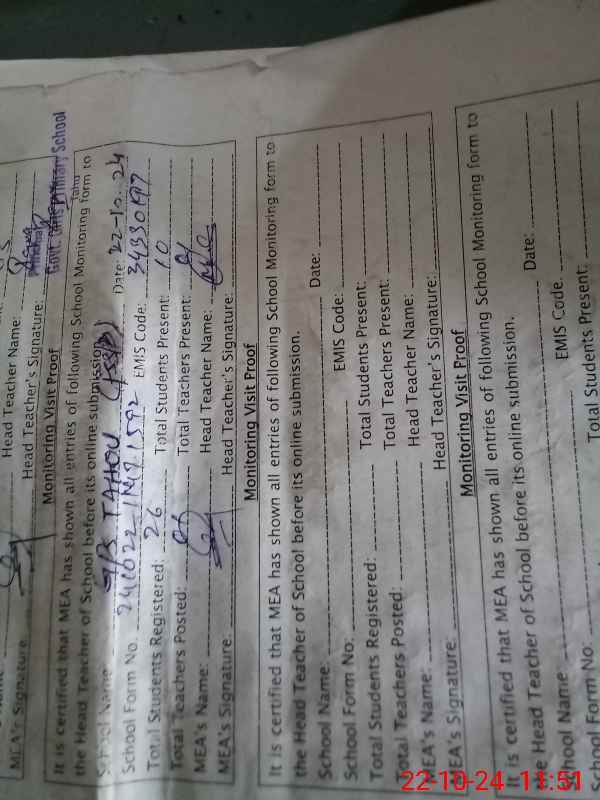 Head Teacher Name:
MEA's Signature Head Teacher's Signature:
Govt. Primary School
Tahu
Monitoring Visit Proof
It is certified that MEA has shown all entries of following School Monitoring form to
the Head Teacher of School before its online submission.
School Name G/PS TAHOU Date: 22-10-24
School Form No. EMIS Code: 34330197
Total Students Registered: 26 Total Students Present: 10
Total Teachers Posted: Total Teachers Present:
MEA's Name: Head Teacher Name:
MEA's Signature Head Teacher's Signature:
Monitoring Visit Proof
It is certified that MEA has shown all entries of following School Monitoring form to
the Head Teacher of School before its online submission.
School Name Date:
School Form No. EMIS Code:
Total Students Registered: Total Students Present:
Total Teachers Posted: Total Teachers Present:
MEA's Name: Head Teacher Name:
MEA's Signature: Head Teacher's Signature:
Monitoring Visit Proof
It is certified that MEA has shown all entries of following School Monitoring form to
the Head Teacher of School before its online submission.
School Name Date:
School Form No. EMIS Code.
Total Students Present:
22-10-24 11:51